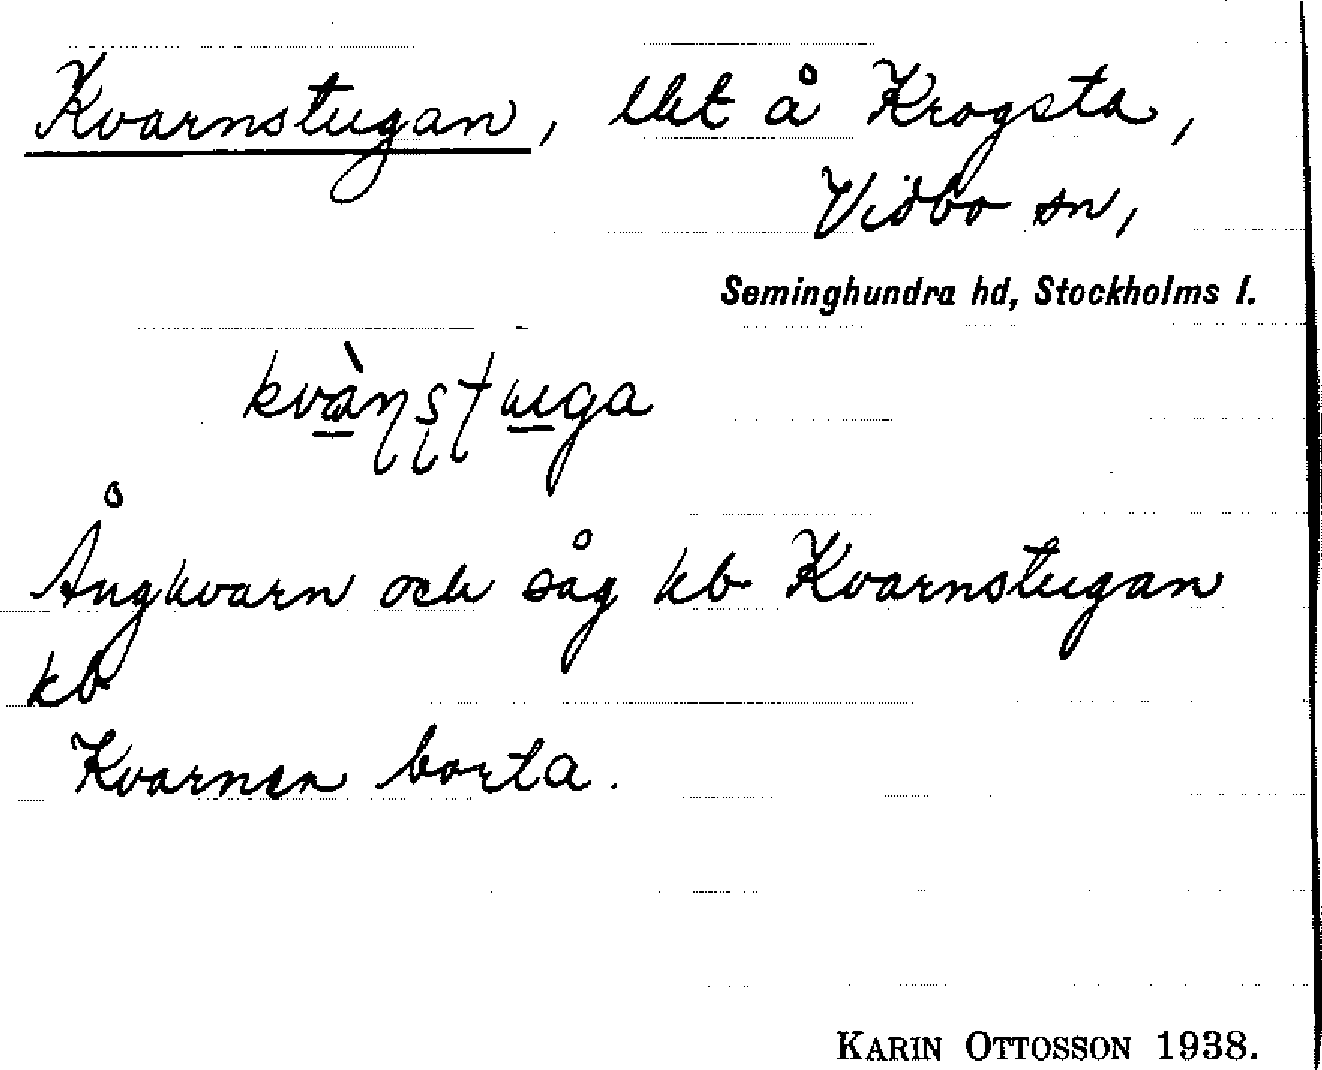 Kvarnstugan, lht å Krogsta,
Vidbo sn,
Seminghundra hd, Stockholms l.
kvàɳʂʈuga
Ångkvarn och såg kb Kvarnstugan
kb
Kvarnen borta.
KARIN OTTOSSON 1938.